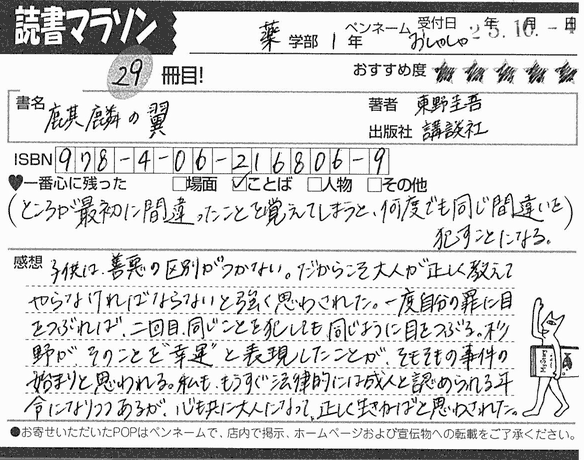 読書マラソン
薬 学部 1 年 ペンネーム おしゃしゃ 受付日 25年10月-4日
29 冊目! おすすめ度 ★★★★★
書名 麒麟の翼
著者 東野圭吾
出版社 講談社
ISBN 978-4-06-216806-9
♥一番心に残った □場面 ☑ことば □人物 □その他
(ところが最初に間違ったことを覚えてしまうと、何度でも同じ間違いを
犯すことになる。)
感想 子供は、善悪の区別がつかない。だからこそ大人が正しく教えて
やらなければならないと強く思わされた。一度自分の罪に目
をつぶれば、二回目、同じことを犯しても同じように目をつぶる。杉
野がそのことを"幸運"と表現したことが、そもそもの事件の
始まりと思われる。私も、もうすぐ法律的には成人と認められる年
令になりつつあるが、心も共に大人になって、正しく生きねばと思わされた。
●お寄せいただいたPOPはペンネームで、店内で掲示、ホームページおよび宣伝物への転載をご了承ください。